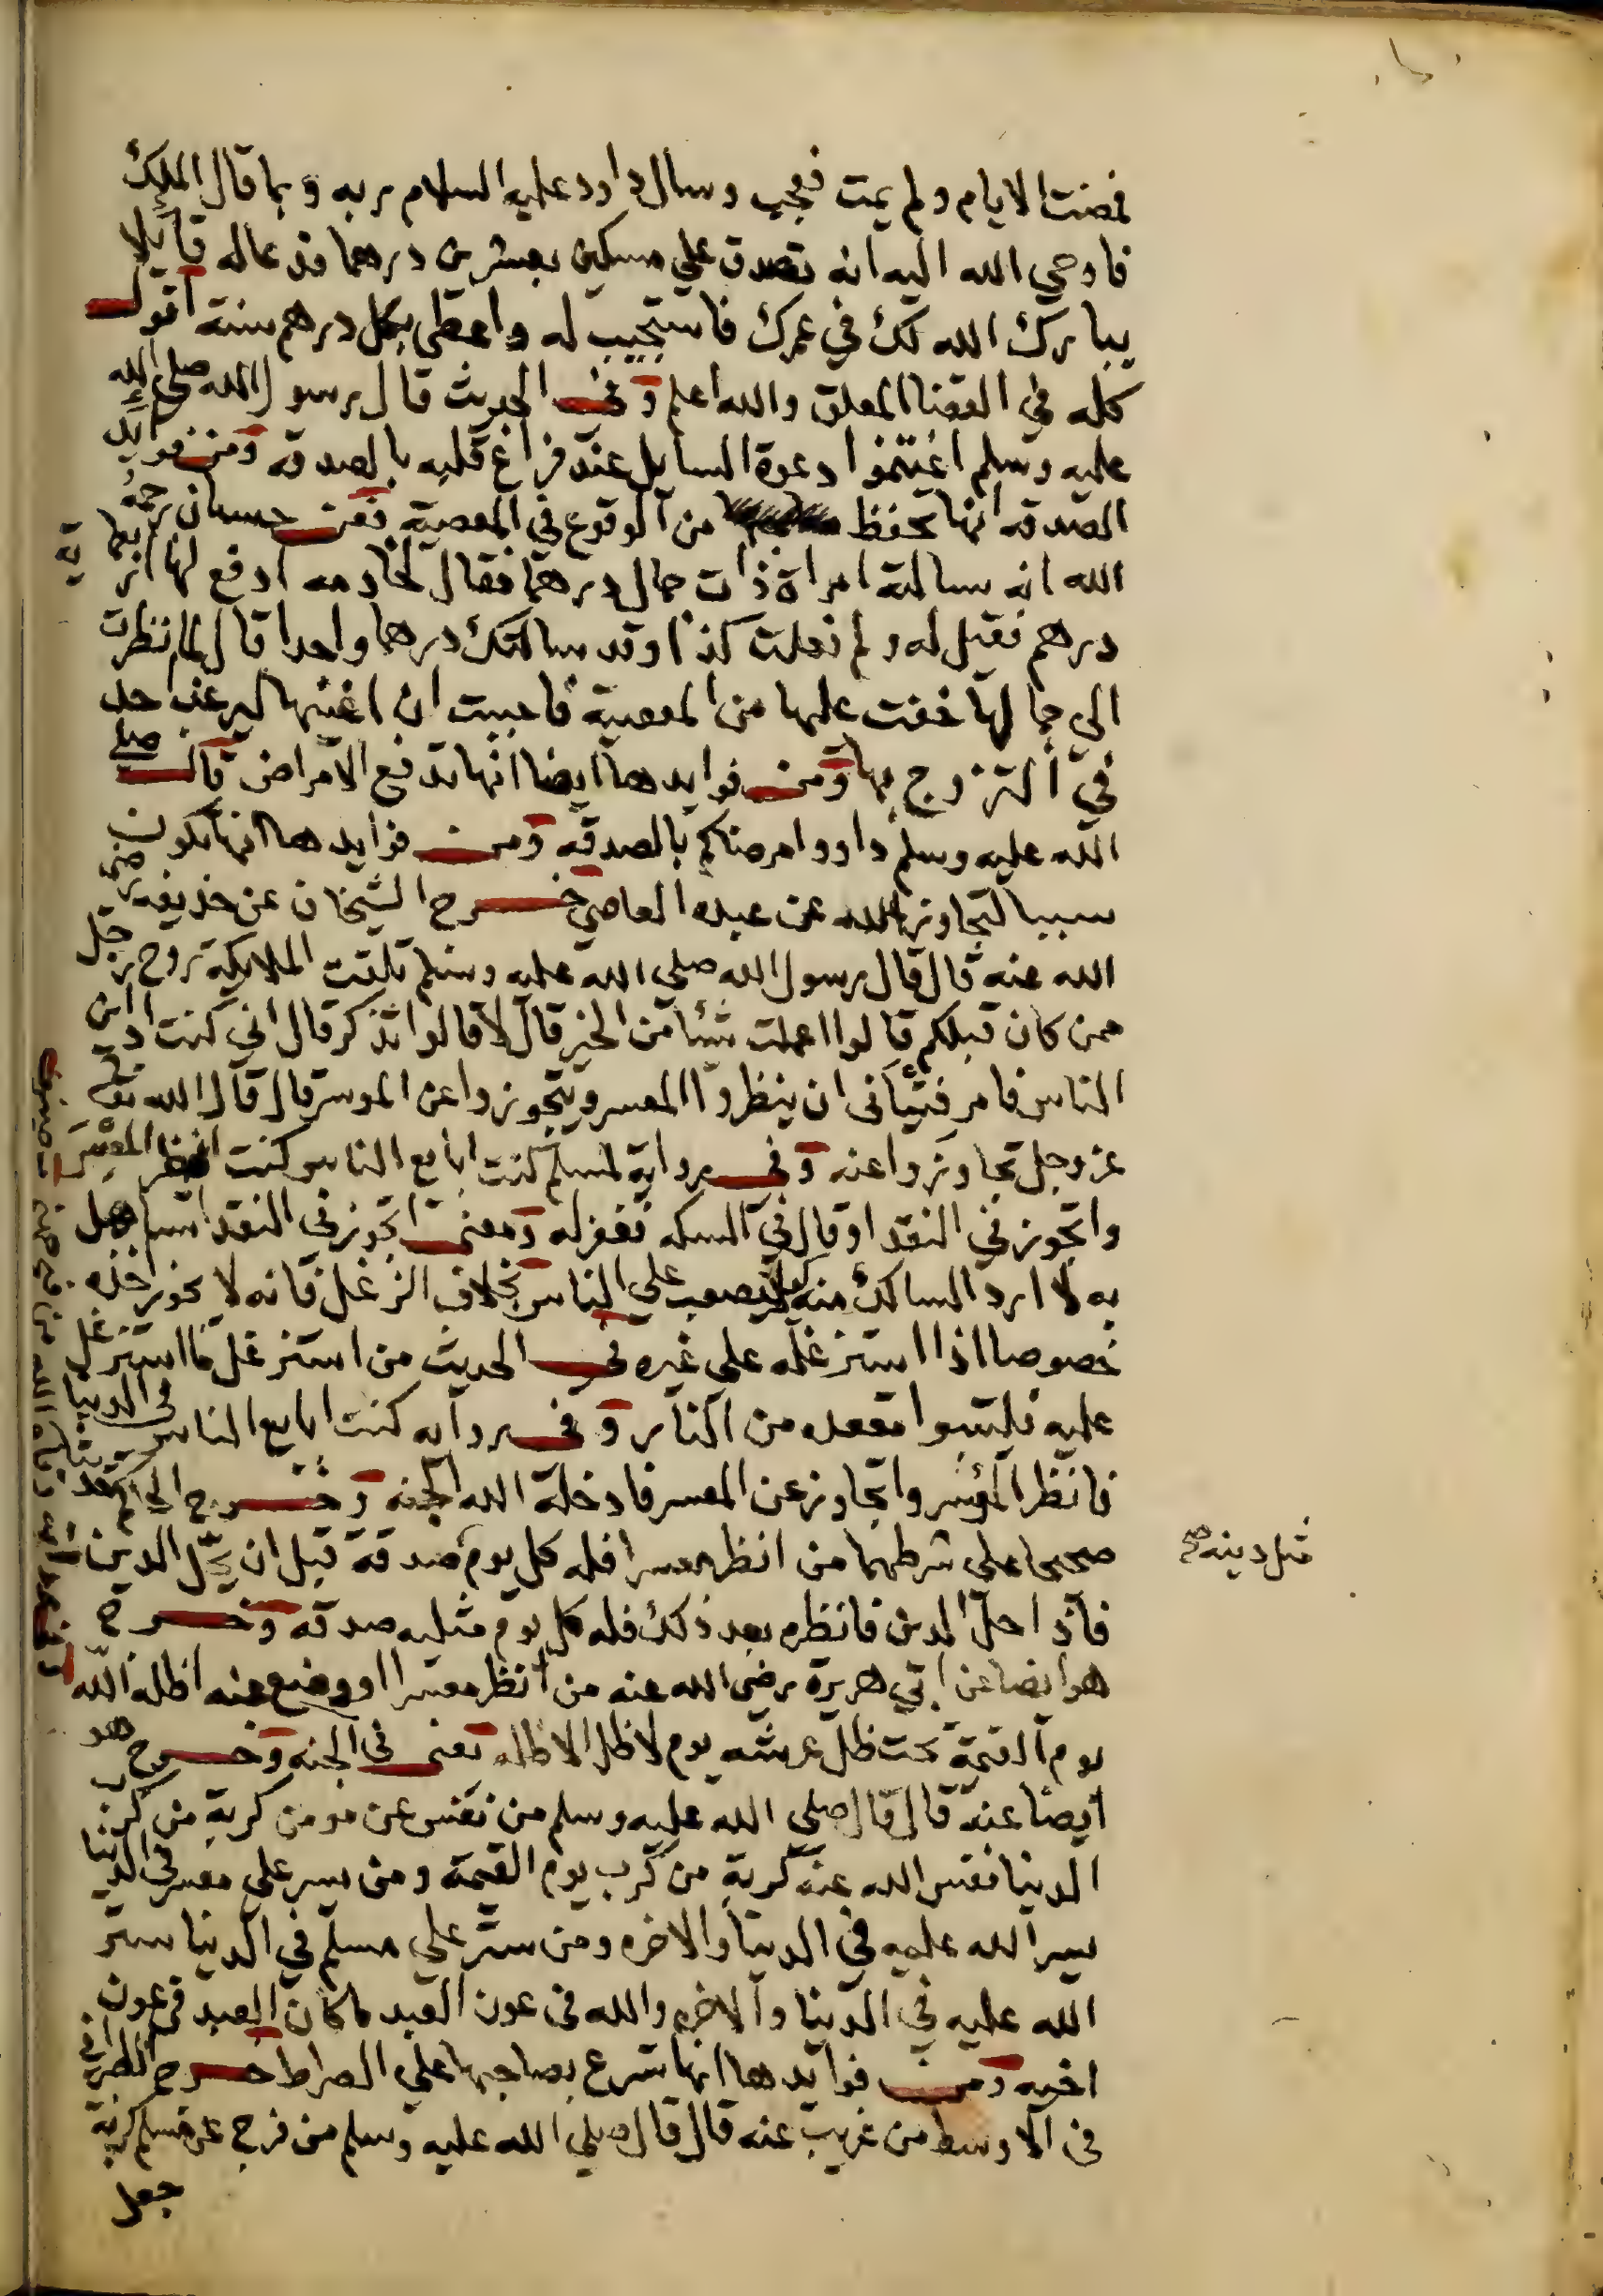 فمضت الايام ولم يمت فعجب وسال داود عليه السلام ربه وبما قال الملك
فاوحي الله اليه انه تصدق علي مسكين بعشرين درهما فدعاله قايلا
يبارك الله لك في عمرك فاستجيب له واعطي بكل درهم سنة اقول
كله في القضا المعلق والله اعلم وفي الحديث قال رسول الله صلي الله
عليه وسلم اغتنموا دعوة السايل عند فراغ قلبه بالصدقه ومن فوايد
الصدقه انها تحفظ من الوقوع في المعصية فعن حسان رحمه
الله انه سالته امراة ذات جمال درهما فقال لخادمه ادفع لها اربعماية
درهم فقيل له ولم فعلت كذا وقد سالتك درهما واحدا قال لما نظرت
الي جمالها خفت عليها من المعصية فاحببت ان اغنيها ليرغب احد
في التزوج بها ومن فوايدها ايضا انها تدفع الامراض قال صلي
الله عليه وسلم داووا مرضاكم بالصدقه ومن فوايدها انها تكون
سببا لتجاوز الله عن عبده العاصي خرج الشيخان عن حذيفه رضي
الله عنه قال قال رسول الله صلي الله عليه وسلم تلقت الملايكة روح رجل
ممن كان قبلكم قالوا اعملت شيئا من الخير قال لا قالوا تذكر قال اني كنت اداين
الناس فامر فتياني ان ينظروا المعسر ويتجوزوا عن الموسر قال قال الله
عز وجل تجاوزوا عنه وفي رواية لمسلم كنت ابايع الناس كنت انظر المعسر
واتجوز في النقد او قال في السكه فغفر له ومعني اتجوز في النقد اتساهل
به لا ارد الساكك منه يصعب علي الناس بخلاف الزغل فانه لا يجوز اخذه
خصوصا اذا استزغله علي غيره في الحديث من استزغل ما استزغل
عليه فليتبوا مقعده من النار وفي روايه كنت ابايع الناس في الدنيا
فانظر الموسر واتجاوز عن المعسر فادخله الله الجنه وخرج الحاكم
صحيحا علي شرطهما من انظر معسرا فله كل يوم صدقة قبل ان يحل الدين
مثل دينه صح
فاذا حل الدين فانظره بعد ذلك فله كل يوم مثليه صدقه وخرج
هو ايضا عن ابي هريرة رضي الله عنه من انظر معسرا او وضع عنه اظله الله
يوم القيمة تحت ظل عرشه يوم لا ظل الا ظله تعني في الجنه وخرج هو
ايضا عنه قال قال صلي الله عليه وسلم من نفس عن مومن كربة من كرب
الدنيا نفس الله عنه كربة من كرب يوم القيمة ومن يسر علي معسر في الدنيا
يسر الله عليه في الدنيا والاخره ومن ستر علي مسلم في الدنيا ستر
الله عليه في الدنيا والاخره والله في عون العبد ما كان العبد في عون
اخيه ومن فوايدها انها تسرع بصاحبها علي الصراط خرج الطبراني
في الاوسط من غريب عنه قال قال صلي الله عليه وسلم من فرج عن مسلم كربة
جعل